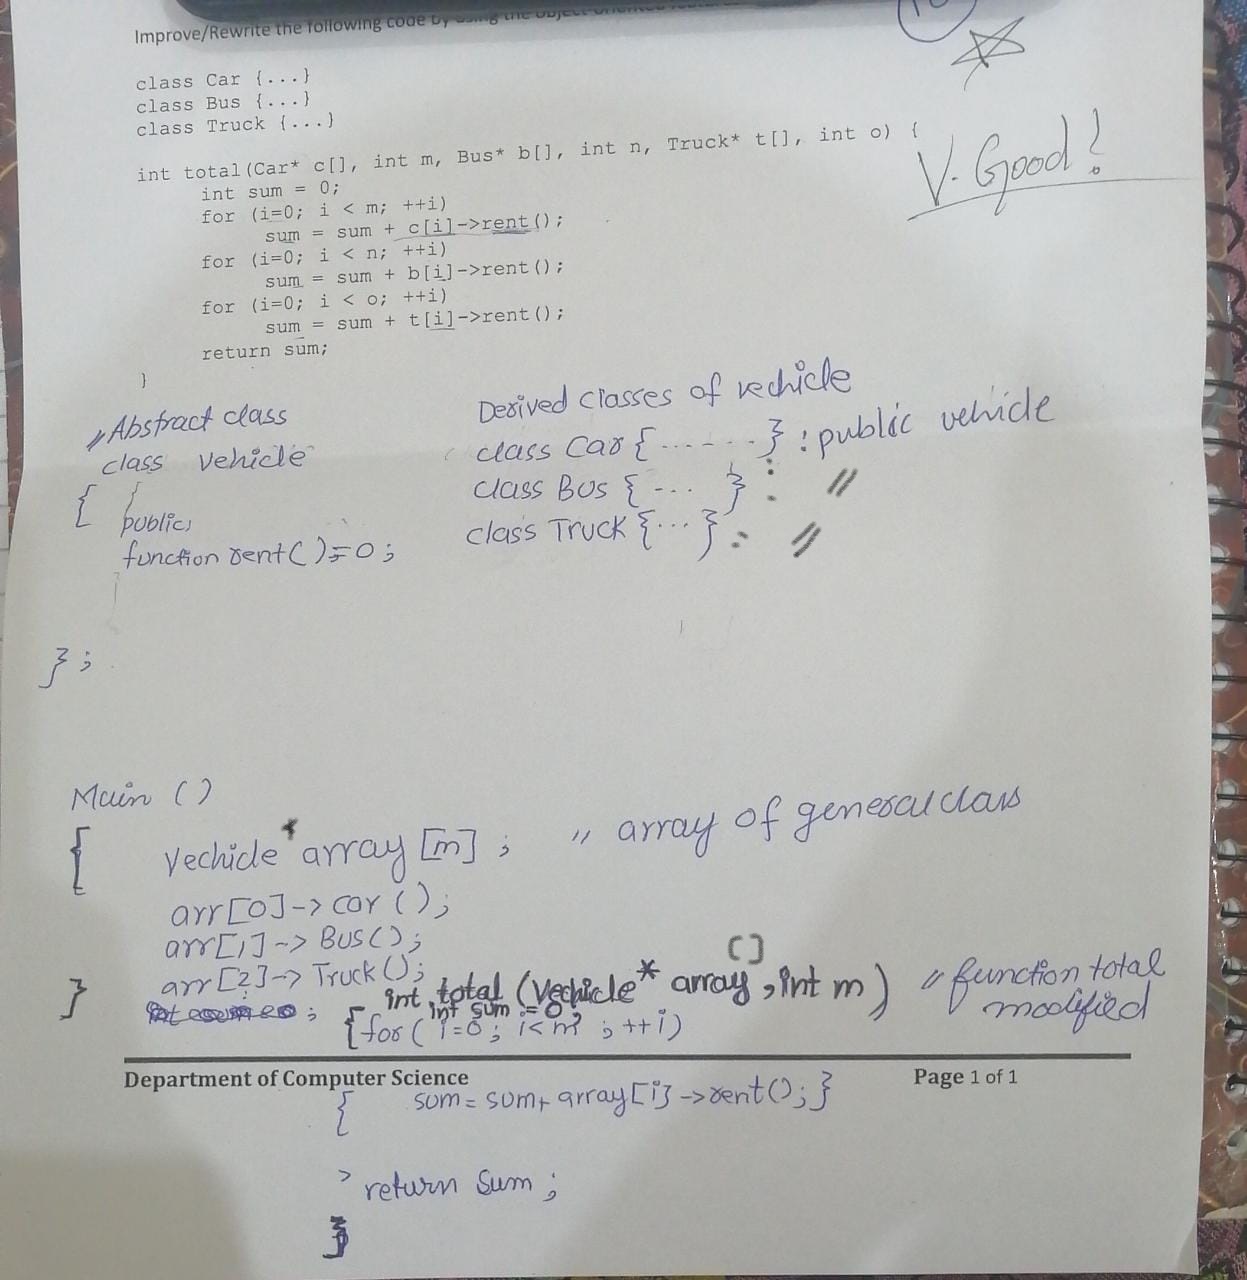 Improve/Rewrite the following code by using the object-oriented
class Car {...}
class Bus {...}
class Truck {...}
V. Good!
int total(Car* c[], int m, Bus* b[], int n, Truck* t[], int o) {
int sum = 0;
for (i=0; i < m; ++i)
sum = sum + c[i]->rent();
for (i=0; i < n; ++i)
sum = sum + b[i]->rent();
for (i=0; i < o; ++i)
sum = sum + t[i]->rent();
return sum;
}
// Abstract class
class vehicle
{
public:
function rent()=0;
};
Derived classes of vechicle
class Car {.......} : public vehicle
class Bus {... } : //
class Truck {...} : //
Main ()
{ Vechicle* array [m] ; // array of general class
arr[0]-> car ();
arr[1]-> Bus();
arr[2]-> Truck();
}
int total (Vechicle* array[], int m) // function total modified
int sum = 0;
{for ( i=0 ; i<m ; ++i)
Department of Computer Science Page 1 of 1
{ sum = sum + array[i] ->rent(); }
return sum ;
}